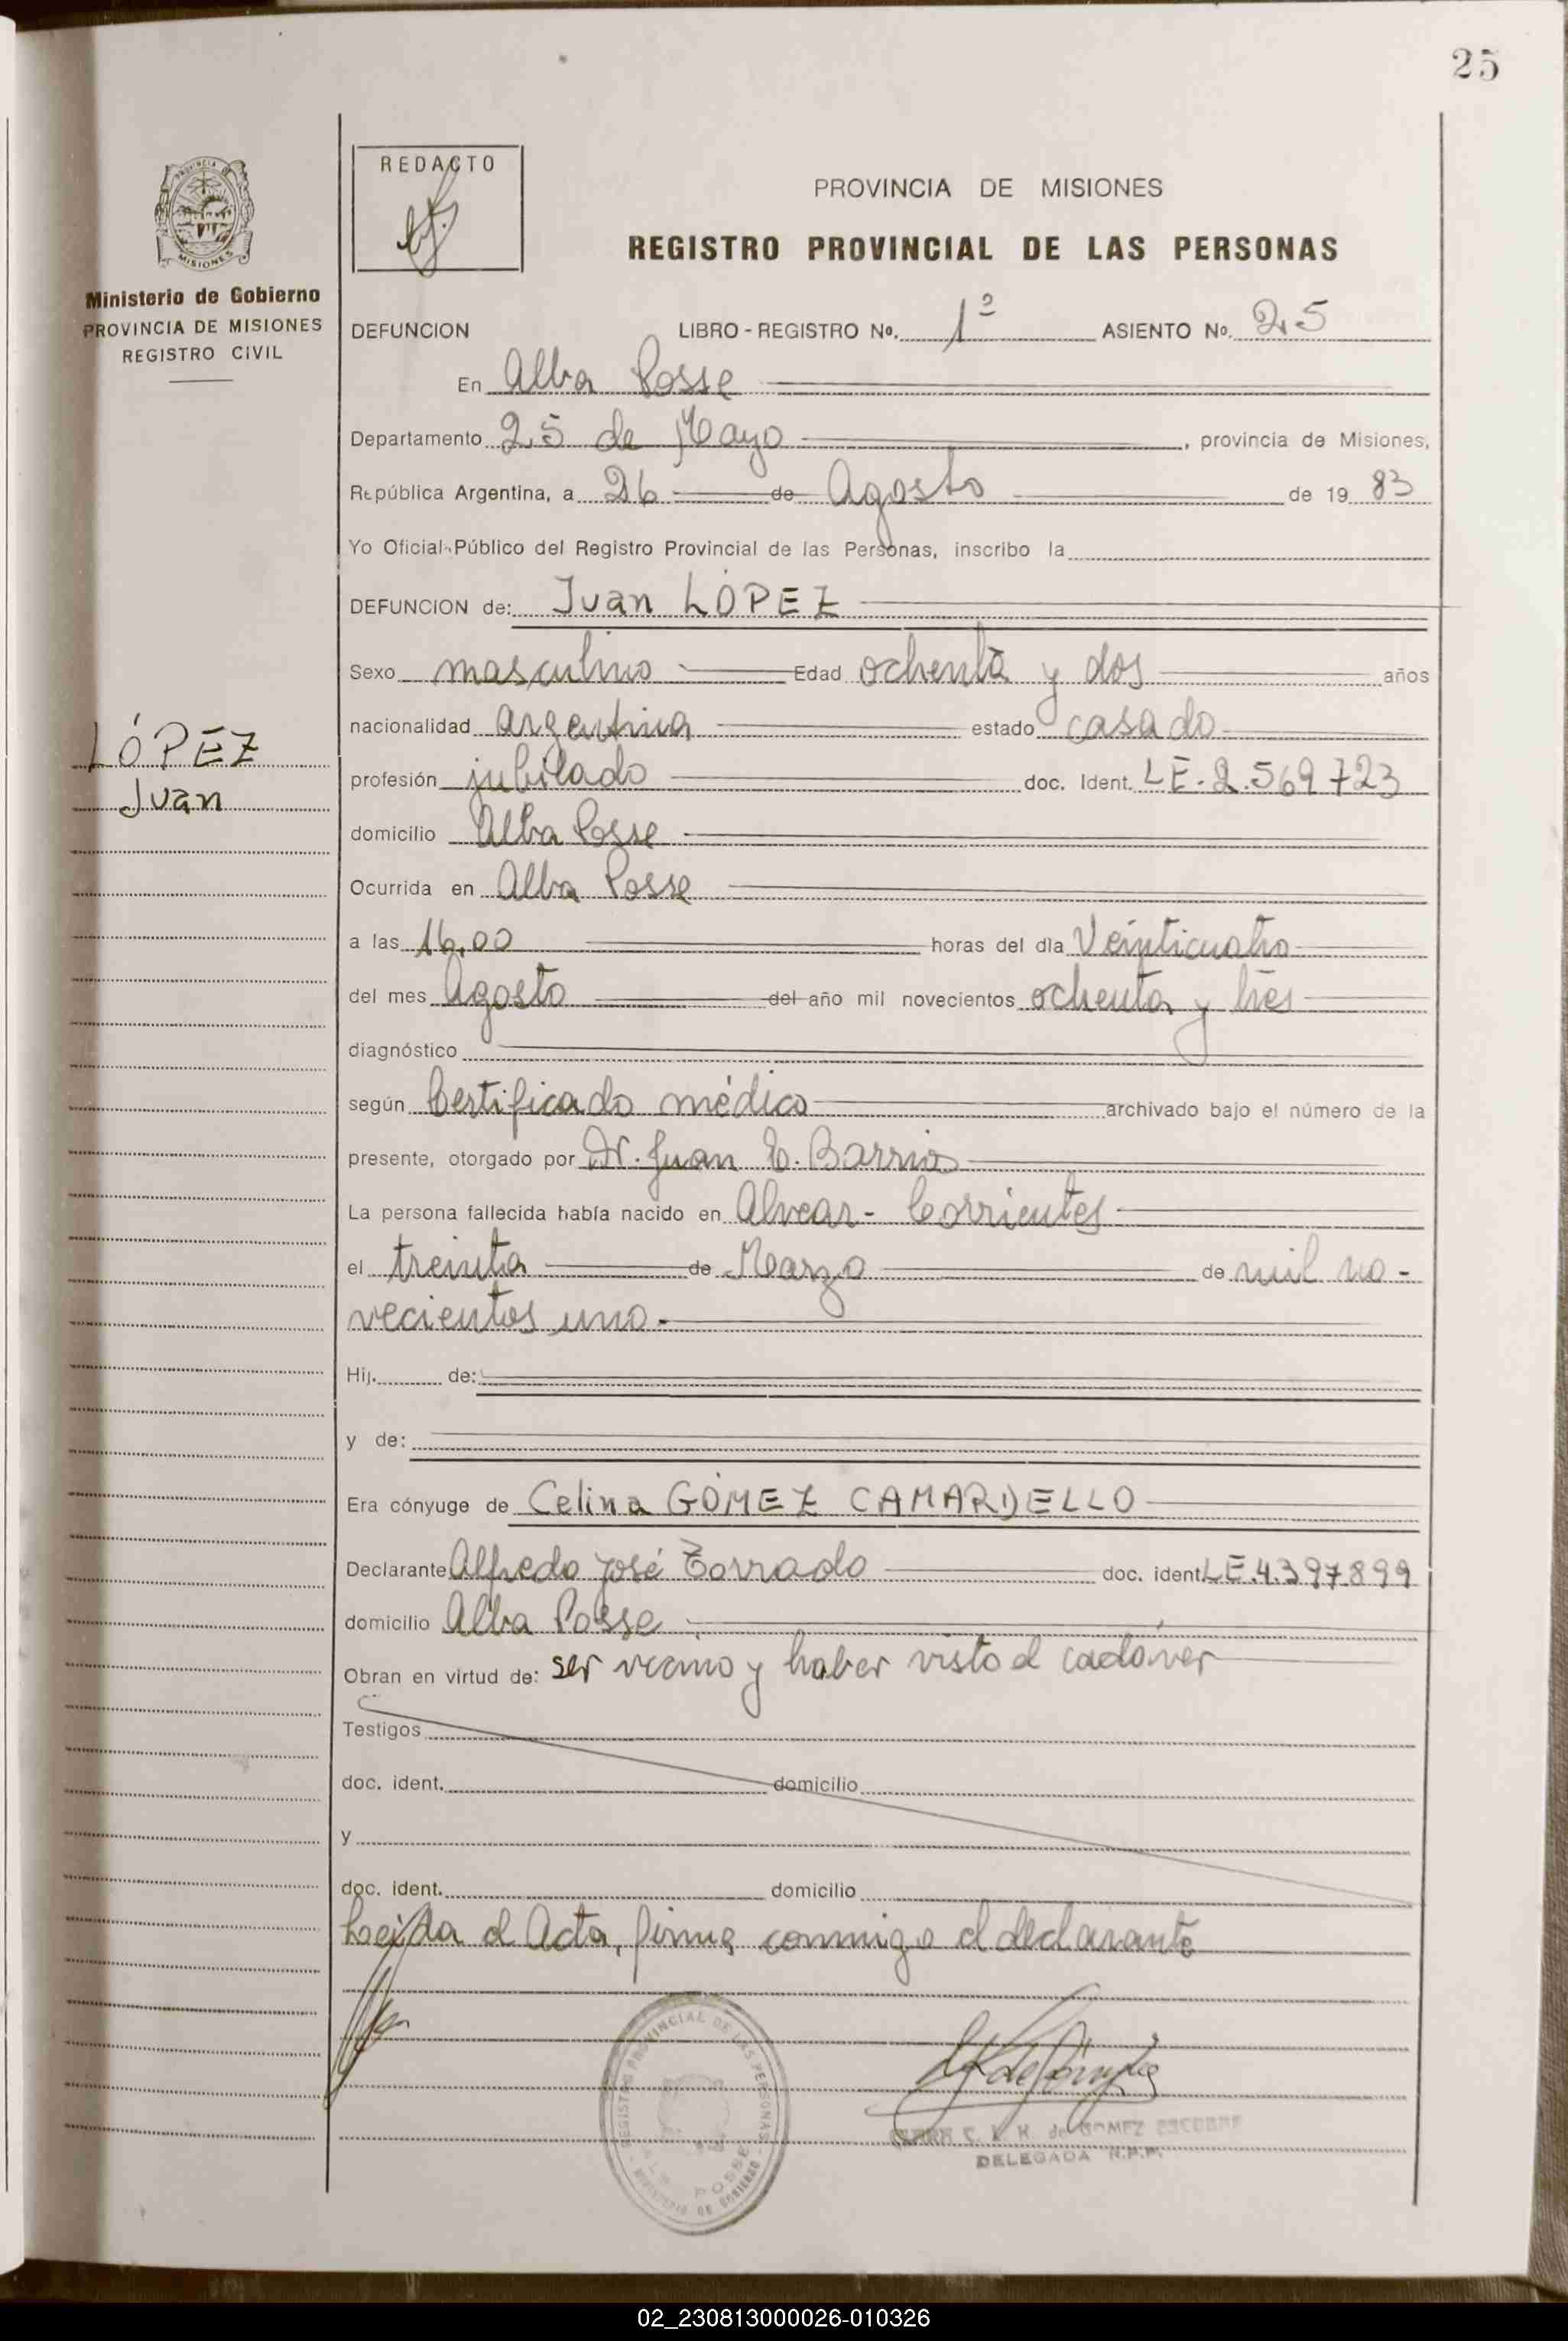 25
REDACTO
PROVINCIA DE MISIONES
REGISTRO PROVINCIAL DE LAS PERSONAS
Ministerio de Gobierno
PROVINCIA DE MISIONES
REGISTRO CIVIL
DEFUNCION LIBRO - REGISTRO Nº. 1º ASIENTO Nº. 25
En Alba Posse
Departamento 25 de Mayo, provincia de Misiones,
República Argentina, a 26 de Agosto de 19 83
Yo Oficial Público del Registro Provincial de las Personas, inscribo la
DEFUNCION de: Juan LÓPEZ
Sexo masculino Edad ochenta y dos años
nacionalidad argentina estado casado
LÓPEZ
Juan
profesión jubilado doc. Ident. LE-2.569723
domicilio Alba Posse
Ocurrida en Alba Posse
a las 16,00 horas del día Veinticuatro
del mes Agosto del año mil novecientos ochenta y tres
diagnóstico
según Certificado médico archivado bajo el número de la
presente, otorgado por Dr. Juan C. Barrios
La persona fallecida había nacido en Alvear - Corrientes
el treinta de Marzo de mil no-
vecientos uno.-
Hij. de:
y de:
Era cónyuge de Celina GÓMEZ CAMARDELLO
Declarante Alfredo José Torrado doc. ident LE.4.397.899
domicilio Alba Posse
Obran en virtud de: ser vecino y haber visto el cadáver
Testigos
doc. ident. domicilio
y
doc. ident. domicilio
Leída el Acta, firma conmigo el declarante
REGISTRO PROVINCIAL DE LAS PERSONAS
ALBA POSSE
MINISTERIO DE GOBIERNO
de GOMEZ ESCOBAR
DELEGADA R.P.P.
02_230813000026-010326